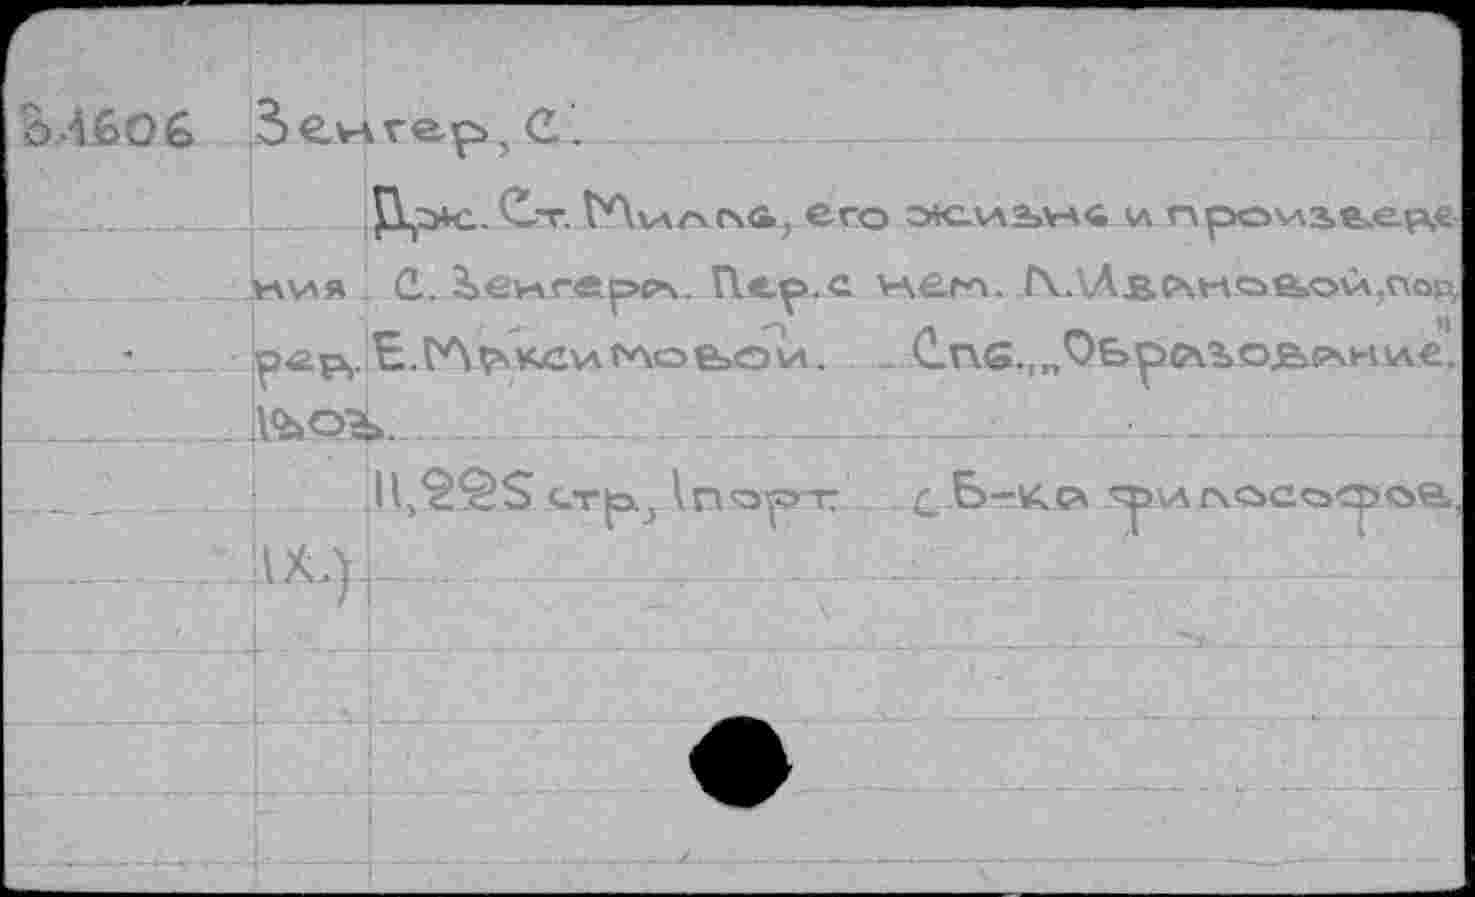 В.1606 Зенгер, С.
Дж. Ст. Милль, его жизнь и произведе
ния С. Зенгера. Пер. с нем. Л. Ивановой, под
ред. Е. Максимовой. Спб., „Образование".
1903.
II, 225 стр., 1 порт. с Б-ка философов,
IX.)